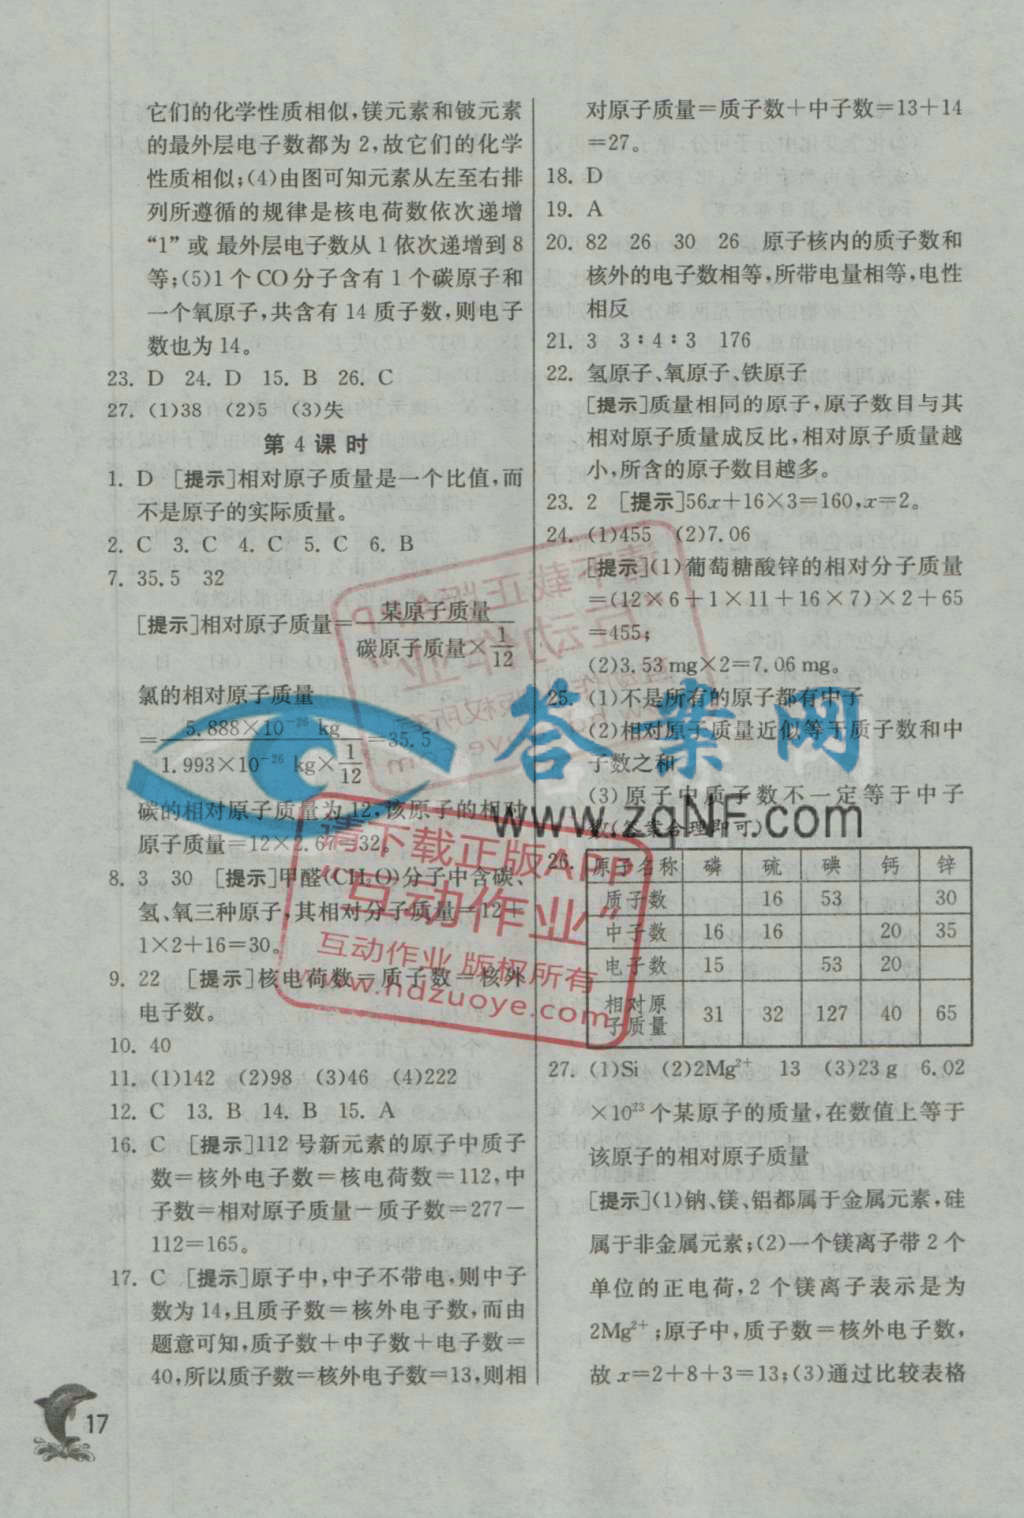 它们的化学性质相似,镁元素和铍元素
的最外层电子数都为 2,故它们的化学
性质相似;(4)由图可知元素从左至右排
列所遵循的规律是核电荷数依次递增
“1”或 最外层电子数从 1 依次递增到 8
等;(5)1 个 CO 分子含有 1 个碳原子和
一个氧原子,共含有 14 质子数,则电子
数也为 14。
23. D 24. D 15. B 26. C
27. (1)38 (2)5 (3)失
第 4 课 时
1. D [提示]相对原子质量是一个比值,而
不是原子的实际质量。
2. C 3. C 4. C 5. C 6. B
7. 35.5 32
[提示]相对原子质量=某原子质量/碳原子质量×1/12
氯的相对原子质量
=5.888×10⁻²⁶ kg/1.993×10⁻²⁶ kg×1/12=35.5
碳的相对原子质量为 12,该原子的相对
原子质量=12×2.67=32。
8. 3 30 [提示]甲醛(CH₂O)分子中含碳、
氢、氧三种原子,其相对分子质量=12+
1×2+16=30。
9. 22 [提示]核电荷数=质子数=核外
电子数。
10. 40
11. (1)142 (2)98 (3)46 (4)222
12. C 13. B 14. B 15. A
16. C [提示]112 号新元素的原子中质子
数=核外电子数=核电荷数=112,中
子数=相对原子质量-质子数=277-
112=165。
17. C [提示]原子中,中子不带电,则中子
数为 14,且质子数=核外电子数,而由
题意可知,质子数+中子数+电子数=
40,所以质子数=核外电子数=13,则相
对原子质量=质子数+中子数=13+14
=27。
18. D
19. A
20. 82 26 30 26 原子核内的质子数和
核外的电子数相等,所带电量相等,电性
相反
21. 3 3∶4∶3 176
22. 氢原子、氧原子、铁原子
[提示]质量相同的原子,原子数目与其
相对原子质量成反比,相对原子质量越
小,所含的原子数目越多。
23. 2 [提示]56x+16×3=160,x=2。
24. (1)455 (2)7.06
[提示](1)葡萄糖酸锌的相对分子质量
=(12×6+1×11+16×7)×2+65
=455;
(2)3.53 mg×2=7.06 mg。
25. (1)不是所有的原子都有中子
(2)相对原子质量近似等于质子数和中
子数之和
(3)原子中质子数不一定等于中子
数(答案合理即可)
26. 原子名称 磷 硫 碘 钙 锌
质子数 16 53 30
中子数 16 16 20 35
电子数 15 53 20
相对原
子质量 31 32 127 40 65
27. (1)Si (2)2Mg²⁺ 13 (3)23 g 6.02
×10²³ 个某原子的质量,在数值上等于
该原子的相对原子质量
[提示](1)钠、镁、铝都属于金属元素,硅
属于非金属元素;(2)一个镁离子带 2 个
单位的正电荷,2 个镁离子表示是为
2Mg²⁺;原子中,质子数=核外电子数,
故 x=2+8+3=13;(3)通过比较表格
17
答案网
www.zqNF.com
请下载正版APP
“互动作业”
互动作业 版权所有
www.hdzuoye.com